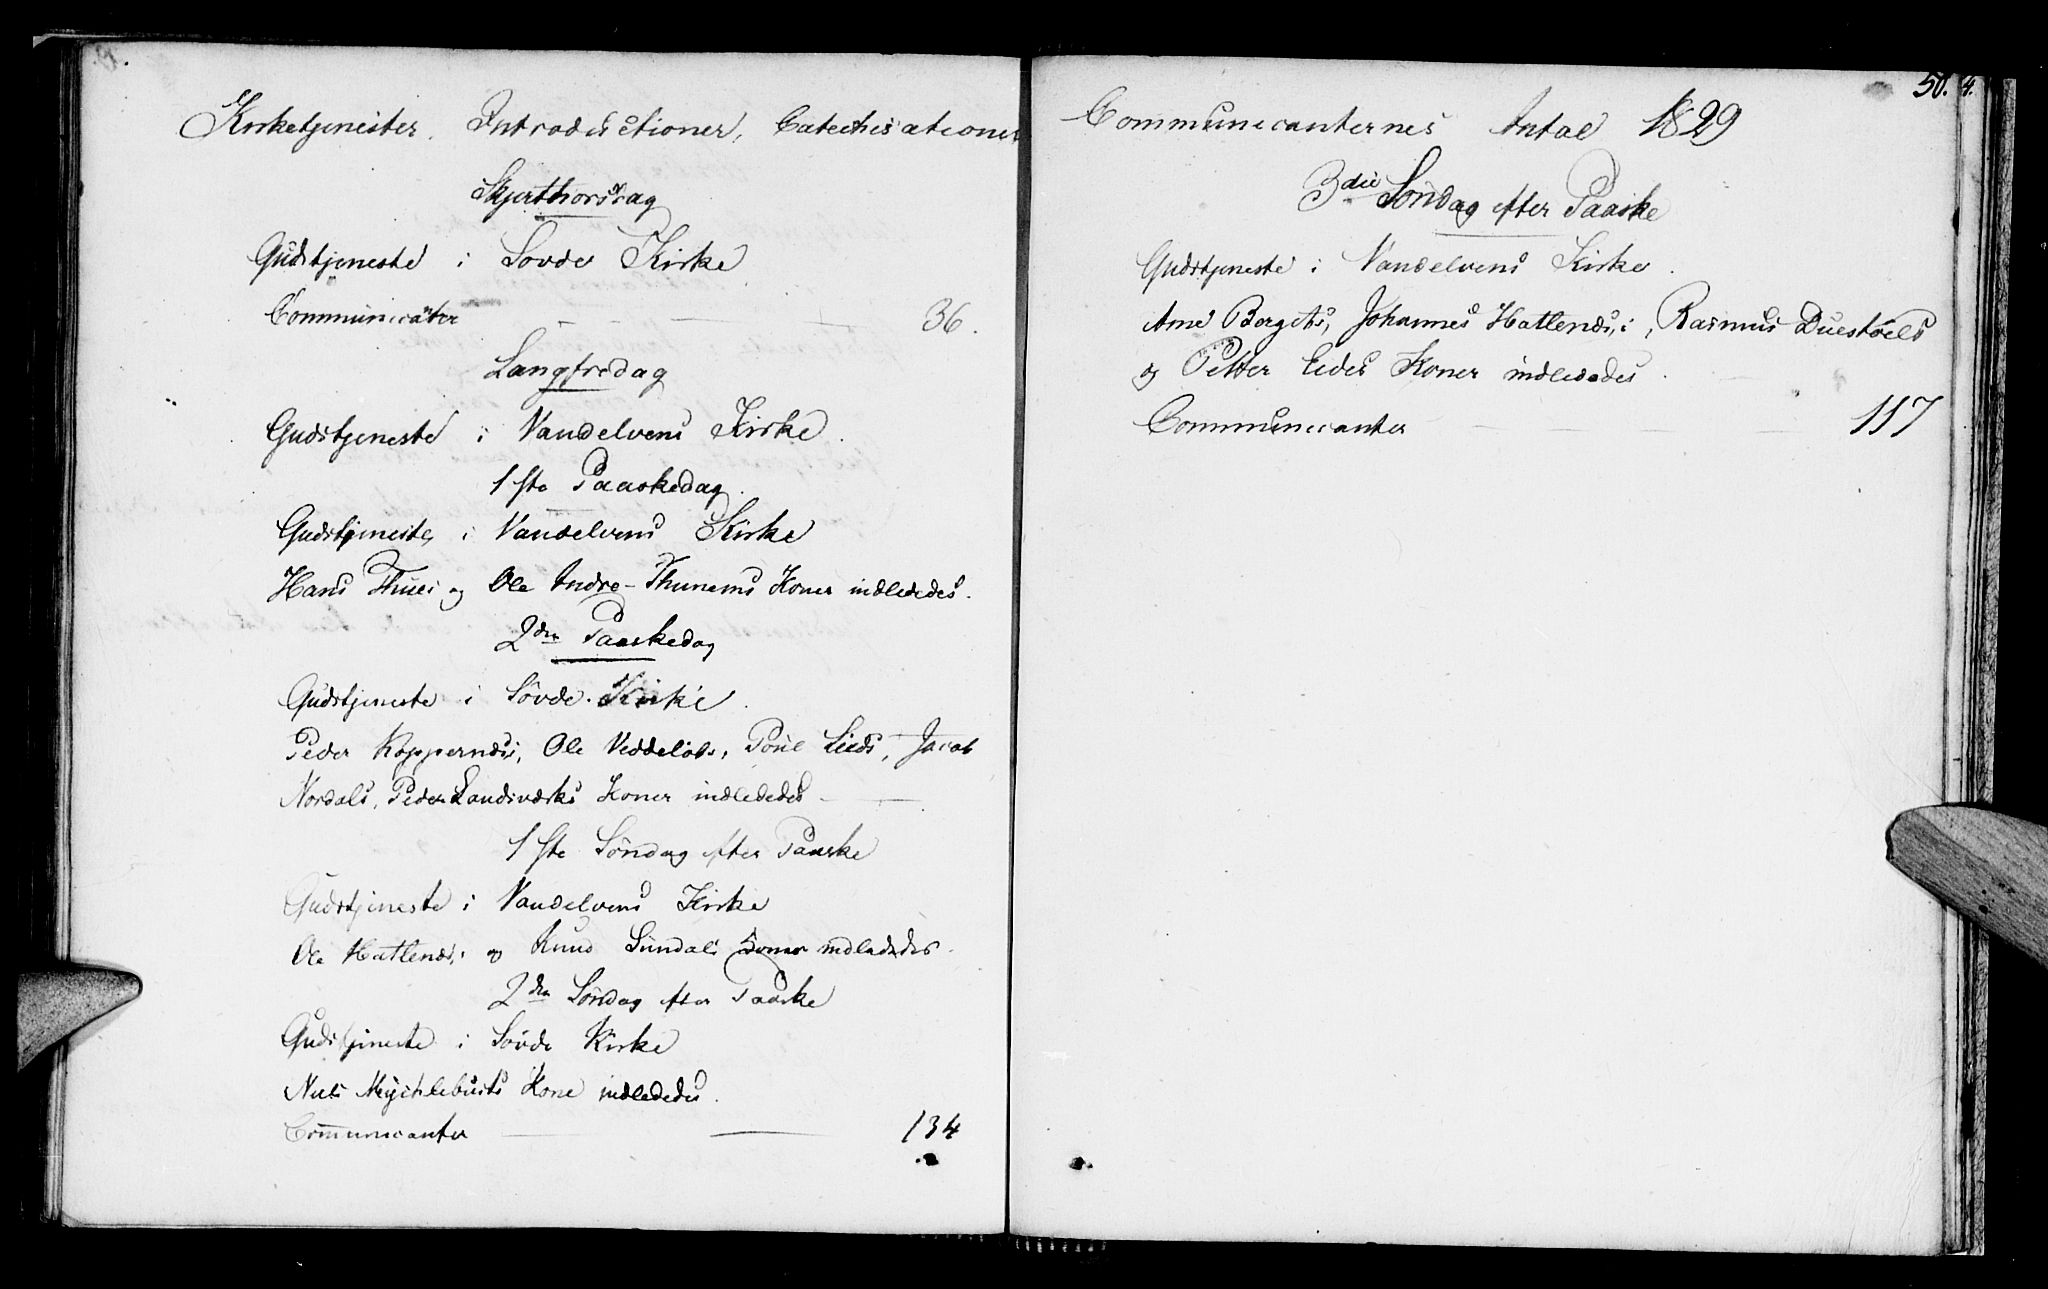 Kirketjenester, Introductioner, Catechisationer
Skjerthorsdag
Gudstjeneste i Sövde Kirke
Communicanter 36.
Langfredag
Gudstjeneste i Vandelvens Kirke
1ste Paaskedag
Gudstjeneste i Vandelvens Kirke
Hans Thues og Ole Indre-Thunems Koner indlededes.
2den Paaskedag
Gudstjeneste i Sövde Kirke
Peder Koppernæs, Ole Veddelds, Poul Lieds, Jacob
Nordals, Peder Landsværks Koner indlededes
1ste Söndag efter Paaske
Gudstjeneste i Vandelvens Kirke
Ole Hatlenæs, og Knud Sundals Koner indlededes.
2den Söndag efter Paaske
Gudstjeneste i Sövde Kirke
Niels Mychlebusts Kone indlededes.
Communicanter 134
50. 4.
Communicanternes Antal 1829
3die Söndag efter Paaske
Gudstjeneste i Vandelvens Kirke.
Arne Bergets, Johannes Hatlenæs, Rasmus Duestöels
og Petter Eides Koner indlededes.
Communicanter 117